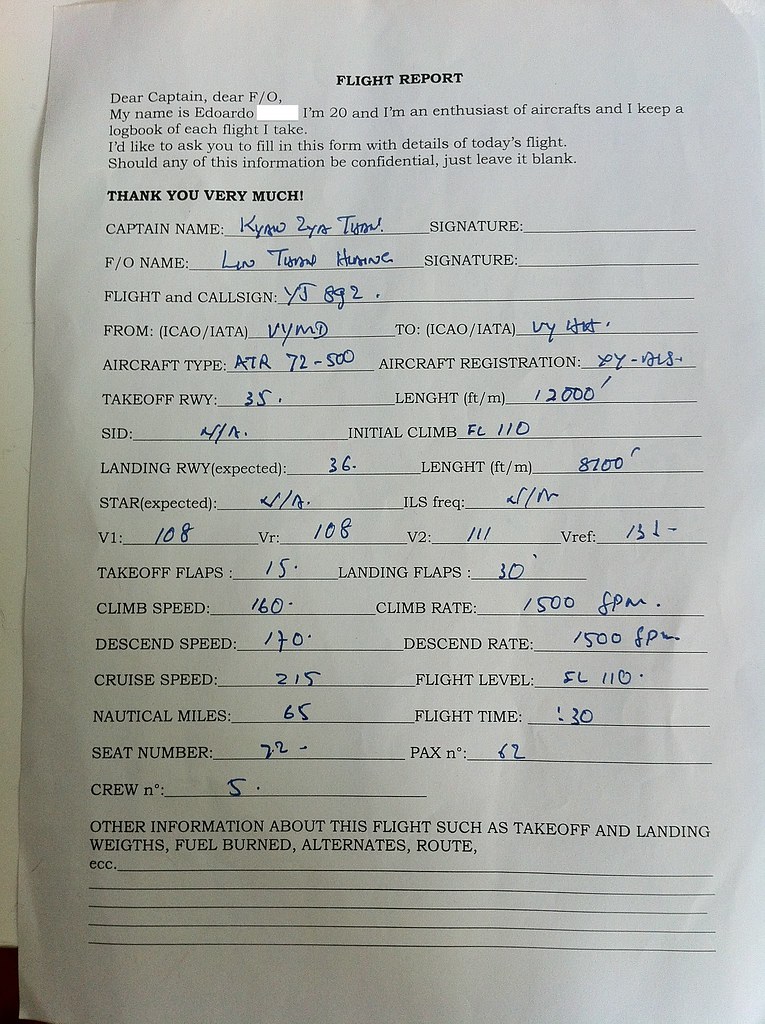 FLIGHT REPORT
Dear Captain, dear F/O,
My name is Edoardo I'm 20 and I'm an enthusiast of aircrafts and I keep a
logbook of each flight I take.
I'd like to ask you to fill in this form with details of today's flight.
Should any of this information be confidential, just leave it blank.
THANK YOU VERY MUCH!
CAPTAIN NAME: Kyaw Zya Than. SIGNATURE:
F/O NAME: Lin Thant SIGNATURE:
FLIGHT and CALLSIGN: YJ 892.
FROM: (ICAO/IATA) VYMD TO: (ICAO/IATA) VY
AIRCRAFT TYPE: ATR 72-500 AIRCRAFT REGISTRATION:
TAKEOFF RWY: 35. LENGHT (ft/m) 12000'
SID: N/A. INITIAL CLIMB FL 110
LANDING RWY(expected): 36. LENGHT (ft/m)
STAR(expected): N/A. ILS freq: N/A
V1: 108 Vr: 108 V2: 111 Vref:
TAKEOFF FLAPS : 15. LANDING FLAPS : 30
CLIMB SPEED: 160. CLIMB RATE: 1500 fpm.
DESCEND SPEED: 170. DESCEND RATE: 1500 fpm
CRUISE SPEED: 215 FLIGHT LEVEL: FL 110.
NAUTICAL MILES: 65 FLIGHT TIME: :30
SEAT NUMBER: 72 - PAX n°: 62
CREW n°: 5.
OTHER INFORMATION ABOUT THIS FLIGHT SUCH AS TAKEOFF AND LANDING
WEIGTHS, FUEL BURNED, ALTERNATES, ROUTE,
ecc.